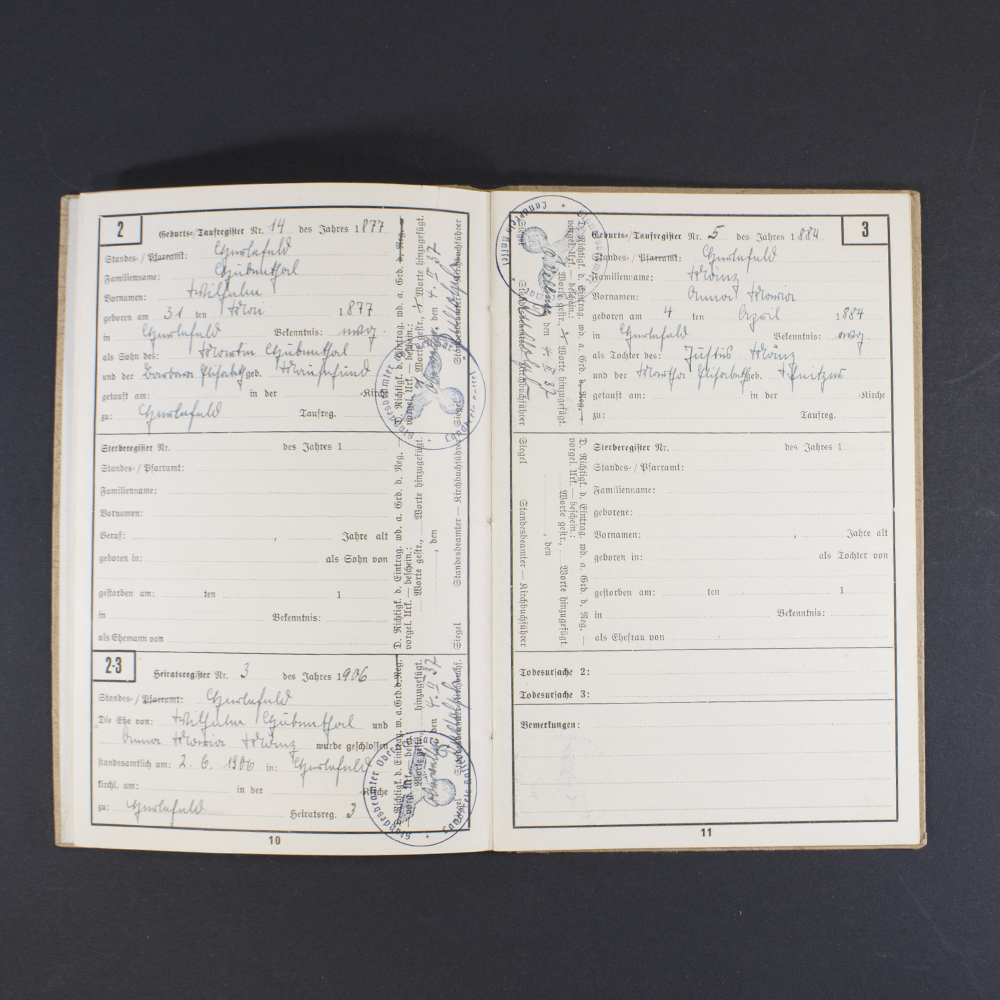 2
Geburts-/Taufregister Nr. 14 des Jahres 1877
Standes-/Pfarramt:
Familienname: Gübenthal
Vornamen: Wilhelm
geboren am 31 ten Mai 1877
in Bekenntnis: evg.
als Sohn des: Martin Gübenthal
und der Barbara Elisabeth geb.
getauft am: in der -Kirche
zu: Taufreg.
Sterberegister Nr. des Jahres 1
Standes-/Pfarramt:
Familienname:
Vornamen:
Beruf: , Jahre alt
geboren in: als Sohn von
gestorben am: ten 1
in Bekenntnis:
als Ehemann von
D. Richtigk. d. Eintrag. wd. a. Grd. d. Reg.
vorgel. Urk. — beschein.:
Worte gestr., Worte hinzugefügt.
, den 4. II 37
Siegel Standesbeamter — Kirchbuchführer
D. Richtigk. d. Eintrag. wd. a. Grd. d. Reg. —
vorgel. Urk. — beschein.:
Worte gestr., Worte hinzugefügt.
, den
Siegel Standesbeamter — Kirchbuchführer
2-3
Heiratsregister Nr. 3 des Jahres 1906
Standes-/Pfarramt:
Die Ehe von: Wilhelm Gübenthal und
Anna Maria Mänz wurde geschlossen
standesamtlich am: 2. 6. 1906 in:
kirchl. am: in der -Kirche
zu: Heiratsreg. 3
den 4. II 37
Standesbeamter
Landkreis Kassel
10
3
Geburts-/Taufregister Nr. 5 des Jahres 1884
Standes-/Pfarramt:
Familienname: Mänz
Vornamen: Anna Maria
geboren am 4 ten April 1884
in Bekenntnis: evg
als Tochter des: Justus Mänz
und der Martha Elisabeth geb.
getauft am: in der -Kirche
zu: Taufreg.
Sterberegister Nr. des Jahres 1
Standes-/Pfarramt:
Familienname:
geborene:
Vornamen: , Jahre alt
geboren in: als Tochter von
gestorben am: ten 1
in Bekenntnis:
als Ehefrau von
D. Richtigk. d. Eintrag. wd. a. Grd. d. Reg. —
vorgel. Urk. — beschein.:
Worte gestr., Worte hinzugefügt.
den 4. II 37
Siegel Standesbeamter — Kirchbuchführer
D. Richtigk. d. Eintrag. wd. a. Grd. d. Reg. —
vorgel. Urk. — beschein.:
Worte gestr., Worte hinzugefügt.
, den
Siegel Standesbeamter — Kirchbuchführer
Landkreis Kassel
Todesursache 2:
Todesursache 3:
Bemerkungen:
11